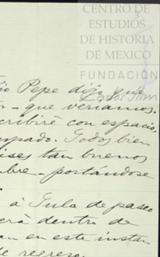 CENTRO DE
ESTUDIOS
DE HISTORIA
DE MÉXICO
FUNDACIÓN
Pepe dijo que
que veríamos,
cribiré con espacio
upado. Todos bien
ises tan buenos
bre portándose
a Tula de paseo
erá dentro de
an en este instan
de regreso